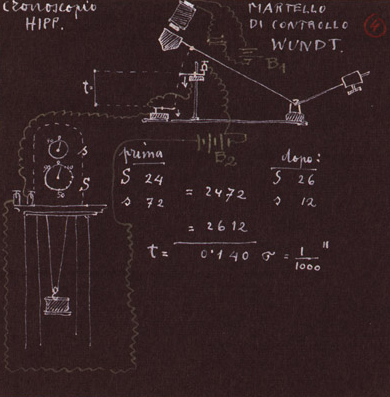 Cronoscopio
HIPP.
MARTELLO
DI CONTROLLO
WUNDT.
4
B1
t
B2
prima
S 24
s 72
= 2472
= 2612
dopo:
S 26
s 12
t = 0.140 σ = 1/1000 "
s
S
50